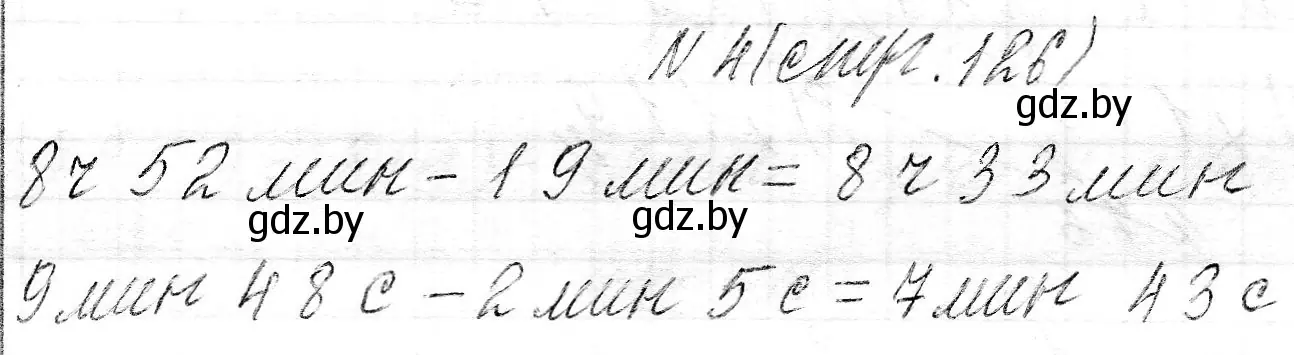 N 4 (стр. 126)
gdz.by
8 ч 52 мин - 19 мин = 8 ч 33 мин
gdz.by gdz.by
9 мин 48 с - 2 мин 5 с = 7 мин 43 с